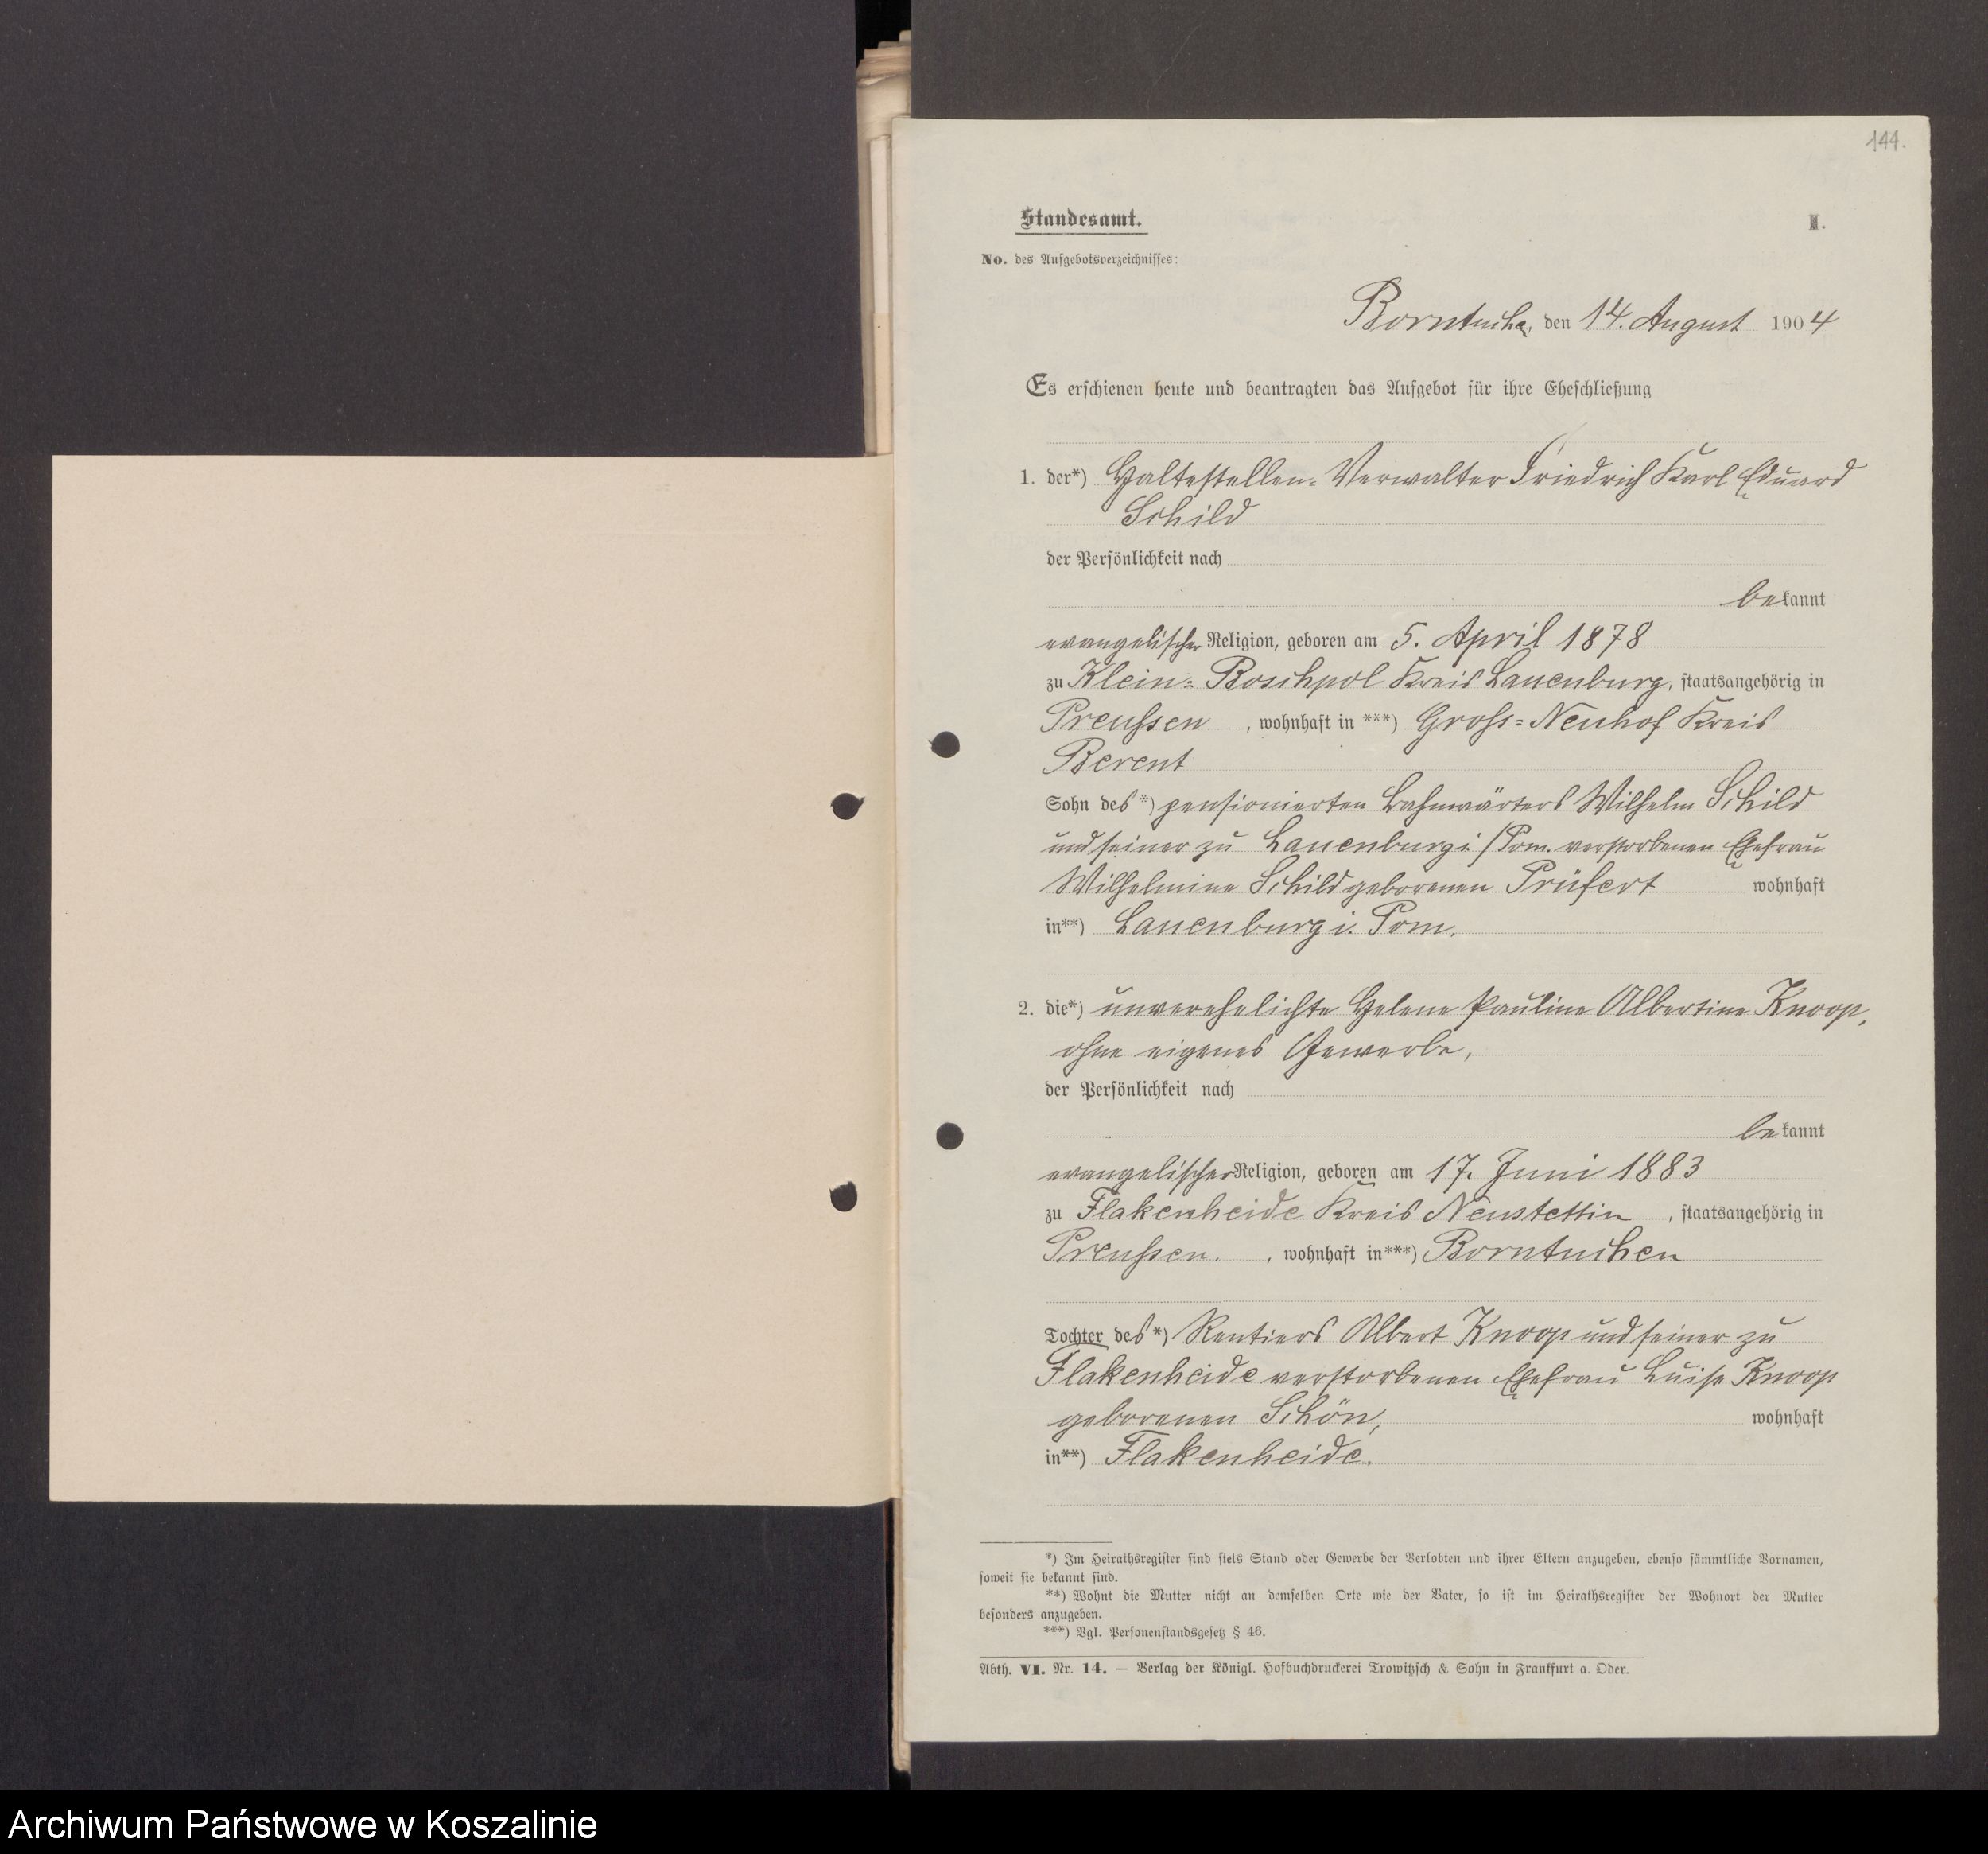 144.
Standesamt.
II.
No. des Aufgebotsverzeichnisses:
Borntuchen, den 14. August 1904
Es erschienen heute und beantragten das Aufgebot für ihre Eheschließung
1. der*) Haltestellen-Verwalter Friedrich Karl Eduard
Schild
der Persönlichkeit nach
bekannt
evangelischer Religion, geboren am 5. April 1878
zu Klein-Boschpol Kreis Lauenburg, staatsangehörig in
Preußen, wohnhaft in ***) Groß-Neuhof Kreis
Berent
Sohn des *) pensionierten Bahnwärters Wilhelm Schild
und seiner zu Lauenburg i/Pom. verstorbenen Ehefrau
Wilhelmine Schild geborenen Prüfert wohnhaft
in**) Lauenburg i. Pom.
2. die*) unverehelichte Helene Pauline Albertine Knoop,
ohne eigenes Gewerbe,
der Persönlichkeit nach
bekannt
evangelischer Religion, geboren am 17. Juni 1883
zu Flakenheide Kreis Neustettin, staatsangehörig in
Preußen., wohnhaft in***) Borntuchen
Tochter des*) Rentiers Albert Knoop und seiner zu
Flakenheide verstorbenen Ehefrau Luise Knoop
geborenen Schön, wohnhaft
in**) Flakenheide.
*) Im Heirathsregister sind stets Stand oder Gewerbe der Verlobten und ihrer Eltern anzugeben, ebenso sämmtliche Vornamen,
soweit sie bekannt sind.
**) Wohnt die Mutter nicht an demselben Orte wie der Vater, so ist im Heirathsregister der Wohnort der Mutter
besonders anzugeben.
***) Vgl. Personenstandsgesetz § 46.
Abth. VI. Nr. 14. — Verlag der Königl. Hofbuchdruckerei Trowitzsch & Sohn in Frankfurt a. Oder.
Archiwum Państwowe w Koszalinie